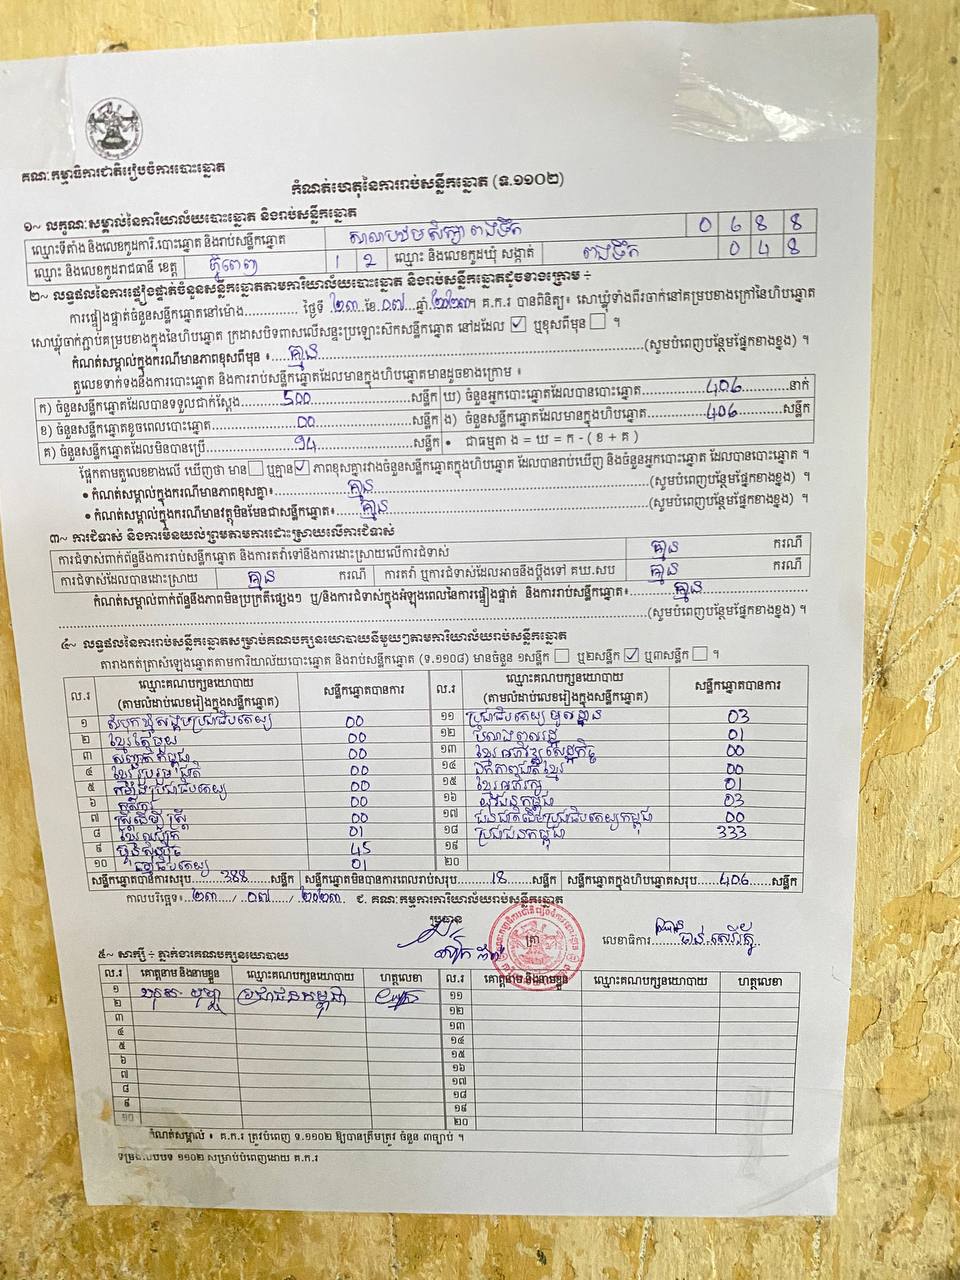 គណៈកម្មាធិការជាតិរៀបចំការបោះឆ្នោត
កំណត់ហេតុនៃការរាប់សន្លឹកឆ្នោត (ទ.១១០២)
១~ លក្ខណៈសម្គាល់នៃការិយាល័យបោះឆ្នោត និងរាប់សន្លឹកឆ្នោត
ឈ្មោះទីតាំង និងលេខកូដការិ.បោះឆ្នោត និងរាប់សន្លឹកឆ្នោត សាលាបឋមសិក្សា ពងទឹក 0 6 8 8
ឈ្មោះ និងលេខកូដរាជធានី ខេត្ត ភ្នំពេញ 1 2 ឈ្មោះ និងលេខកូដឃុំ សង្កាត់ ពងទឹក 0 4 8
២~ លទ្ធផលនៃការផ្ទៀងផ្ទាត់ចំនួនសន្លឹកឆ្នោតតាមការិយាល័យបោះឆ្នោត និងរាប់សន្លឹកឆ្នោតដូចខាងក្រោម ÷
ការផ្ទៀងផ្ទាត់ចំនួនសន្លឹកឆ្នោតនៅម៉ោង.............. ថ្ងៃទី ២៣ ខែ ០៧ ឆ្នាំ ២០២៣។ គ.ក.រ បានពិនិត្យ៖ សោឃ្លុំទាំងពីរចាក់នៅគម្របខាងក្រៅនៃហិបឆ្នោត
សោឃ្លុំចាក់ភ្ជាប់គម្របខាងក្នុងនៃហិបឆ្នោត ក្រដាសបិទពាសលើសន្ទះប្រឡោះសិកសន្លឹកឆ្នោត នៅដដែល ☑ ឬខុសពីមុន ☐ ។
កំណត់សម្គាល់ក្នុងករណីមានភាពខុសពីមុន ៖ គ្មាន (សូមបំពេញបន្ថែមផ្នែកខាងខ្នង) ។
តួលេខទាក់ទងនឹងការបោះឆ្នោត និងការរាប់សន្លឹកឆ្នោតដែលមានក្នុងហិបឆ្នោតមានដូចខាងក្រោម ៖
ក) ចំនួនសន្លឹកឆ្នោតដែលបានទទួលជាក់ស្តែង 500 សន្លឹក ឃ) ចំនួនអ្នកបោះឆ្នោតដែលបានបោះឆ្នោត 406 នាក់
ខ) ចំនួនសន្លឹកឆ្នោតខូចពេលបោះឆ្នោត 00 សន្លឹក ង) ចំនួនសន្លឹកឆ្នោតដែលមានក្នុងហិបឆ្នោត 406 សន្លឹក
គ) ចំនួនសន្លឹកឆ្នោតដែលមិនបានប្រើ 94 សន្លឹក • ជាធម្មតា ង = ឃ = ក - ( ខ + គ )
ផ្អែកតាមតួលេខខាងលើ ឃើញថា មាន ☐ ឬគ្មាន ☑ ភាពខុសគ្នារវាងចំនួនសន្លឹកឆ្នោតក្នុងហិបឆ្នោត ដែលបានរាប់ឃើញ និងចំនួនអ្នកបោះឆ្នោត ដែលបានបោះឆ្នោត ។
• កំណត់សម្គាល់ក្នុងករណីមានភាពខុសគ្នា៖ គ្មាន (សូមបំពេញបន្ថែមផ្នែកខាងខ្នង) ។
• កំណត់សម្គាល់ក្នុងករណីមានវត្ថុមិនមែនជាសន្លឹកឆ្នោត៖ គ្មាន (សូមបំពេញបន្ថែមផ្នែកខាងខ្នង) ។
៣~ ការជំទាស់ និងការមិនយល់ព្រមតាមការដោះស្រាយលើការជំទាស់
ការជំទាស់ពាក់ព័ន្ធនឹងការរាប់សន្លឹកឆ្នោត និងការតវ៉ាទៅនឹងការដោះស្រាយលើការជំទាស់ គ្មាន ករណី
ការជំទាស់ដែលបានដោះស្រាយ គ្មាន ករណី ការតវ៉ា ឬការជំទាស់ដែលអាចនឹងប្តឹងទៅ គឃ.សប គ្មាន ករណី
កំណត់សម្គាល់ពាក់ព័ន្ធនឹងភាពមិនប្រក្រតីផ្សេងៗ ឬ/និងការជំទាស់ក្នុងអំឡុងពេលនៃការផ្ទៀងផ្ទាត់ និងការរាប់សន្លឹកឆ្នោត៖ គ្មាន
(សូមបំពេញបន្ថែមផ្នែកខាងខ្នង) ។
៤~ លទ្ធផលនៃការរាប់សន្លឹកឆ្នោតសម្រាប់គណបក្សនយោបាយនីមួយៗតាមការិយាល័យរាប់សន្លឹកឆ្នោត
តារាងកត់ត្រាសំឡេងឆ្នោតតាមការិយាល័យបោះឆ្នោត និងរាប់សន្លឹកឆ្នោត (ទ.១១០៨) មានចំនួន ១សន្លឹក ☐ ឬ២សន្លឹក ☑ ឬ៣សន្លឹក ☐ ។
ល.រ ឈ្មោះគណបក្សនយោបាយ (តាមលំដាប់លេខរៀងក្នុងសន្លឹកឆ្នោត) សន្លឹកឆ្នោតបានការ ល.រ ឈ្មោះគណបក្សនយោបាយ (តាមលំដាប់លេខរៀងក្នុងសន្លឹកឆ្នោត) សន្លឹកឆ្នោតបានការ
១ សំបុកឃ្មុំសង្គមប្រជាធិបតេយ្យ 00 ១១ ប្រជាធិបតេយ្យមូលដ្ឋាន 03
២ ខ្មែរតែមួយ 00 ១២ បំលាងពលរដ្ឋ 01
៣ សញ្ជាតិកម្ពុជា 00 ១៣ ខ្មែរអភិវឌ្ឍន៍សេដ្ឋកិច្ច 00
៤ ខ្មែររួបរួមជាតិ 00 ១៤ ឯកភាពជាតិខ្មែរ 00
៥ កម្លាំងប្រជាធិបតេយ្យ 00 ១៥ ខ្មែរអភិរក្ស 01
៦ កសិករ 00 ១៦ យុវជនកម្ពុជា 03
៧ ស្ត្រីដើម្បីស្ត្រី 00 ១៧ ជនជាតិដើមប្រជាធិបតេយ្យកម្ពុជា 00
៨ ខ្មែរឈប់ក្រ 01 ១៨ ប្រជាជនកម្ពុជា 333
៩ ហ្វ៊ុនស៊ិនប៉ិច 45 ១៩
១០ ធម្មាធិបតេយ្យ 01 ២០
សន្លឹកឆ្នោតបានការសរុប 388 សន្លឹក សន្លឹកឆ្នោតមិនបានការពេលរាប់សរុប 18 សន្លឹក សន្លឹកឆ្នោតក្នុងហិបឆ្នោតសរុប 406 សន្លឹក
កាលបរិច្ឆេទ៖ ២៣ / ០៧ / ២០២៣ ជ. គណៈកម្មការការិយាល័យរាប់សន្លឹកឆ្នោត
ប្រធាន ត្រា លេខាធិការ
៥~ សាក្សី ÷ ភ្នាក់ងារគណបក្សនយោបាយ
ល.រ គោត្តនាម និងនាមខ្លួន ឈ្មោះគណបក្សនយោបាយ ហត្ថលេខា ល.រ គោត្តនាម និងនាមខ្លួន ឈ្មោះគណបក្សនយោបាយ ហត្ថលេខា
១ ប្រជាជនកម្ពុជា ១១
២ ១២
៣ ១៣
៤ ១៤
៥ ១៥
៦ ១៦
៧ ១៧
៨ ១៨
៩ ១៩
១០ ២០
កំណត់សម្គាល់ ៖ គ.ក.រ ត្រូវបំពេញ ទ.១១០២ ឱ្យបានត្រឹមត្រូវ ចំនួន ៣ច្បាប់ ។
ទម្រង់បែបបទ ១១០២ សម្រាប់បំពេញដោយ គ.ក.រ